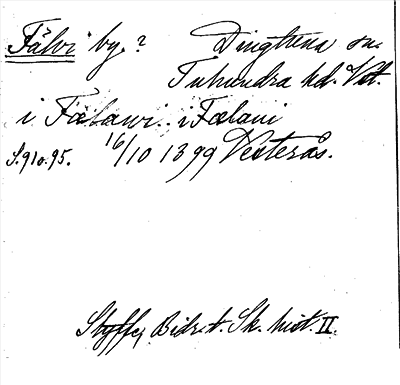 Fälvi by? Dingtuna sn.
Tuhundra hd. Vstl.
i Fælawi. i Fælaui
S. 91 o. 95. 16/10 1399 Vesterås.
Styffe, Bidr. t. Sk. hist. II.